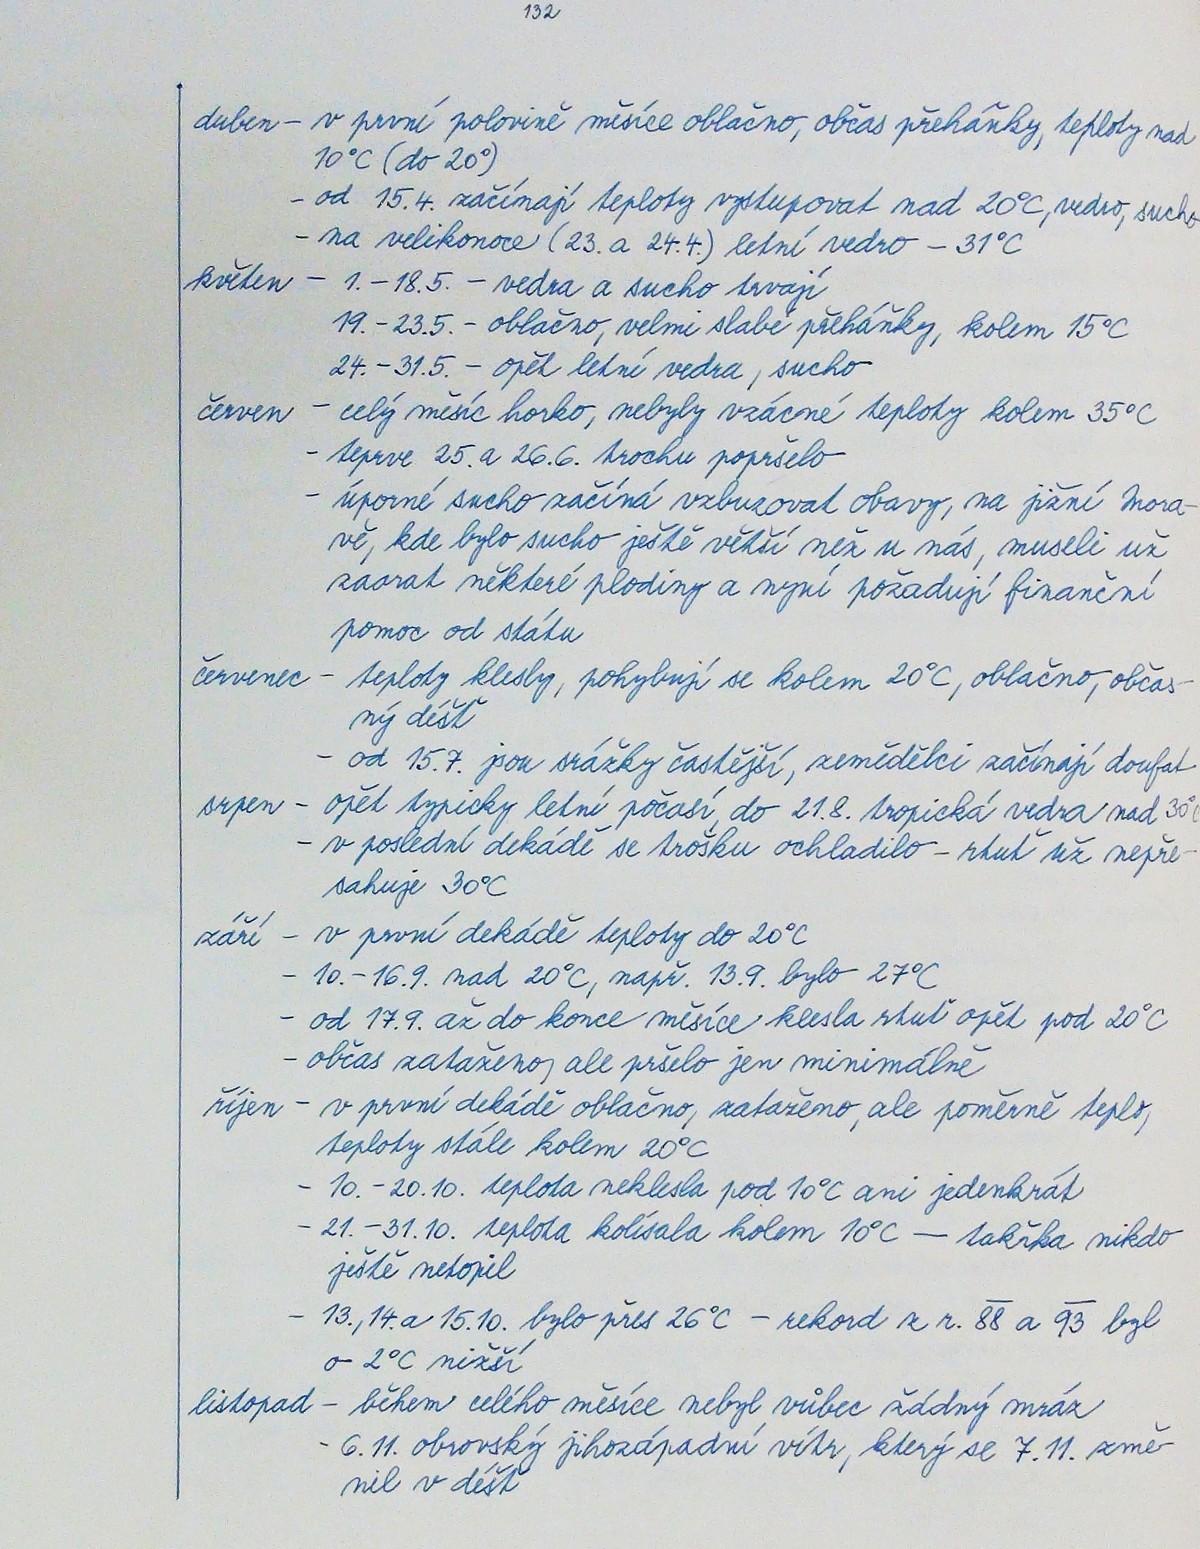 132
duben – v první polovině měsíce oblačno, občas přeháňky, teploty nad
10°C (do 20°)
- od 15.4. začínají teploty vystupovat nad 20°C, vedro, sucho
- na velikonoce (23. a 24.4.) letní vedro – 31°C
květen – 1.–18.5. – vedra a sucho trvají
19.–23.5. – oblačno, velmi slabé přeháňky, kolem 15°C
24.–31.5. – opět letní vedra, sucho
červen – celý měsíc horko, nebyly vzácné teploty kolem 35°C
- teprve 25. a 26.6. trochu popršelo
- úporné sucho začíná vzbuzovat obavy, na jižní Mora-
vě, kde bylo sucho ještě větší než u nás, museli už
zaorat některé plodiny a nyní požadují finanční
pomoc od státu
červenec – teploty klesly, pohybují se kolem 20°C, oblačno, občas-
ný déšť
- od 15.7. jsou srážky častější, zemědělci začínají doufat
srpen – opět typicky letní počasí, do 21.8. tropická vedra nad 30°C
- v poslední dekádě se trošku ochladilo – rtuť už nepře-
sahuje 30°C
září – v první dekádě teploty do 20°C
- 10.–16.9. nad 20°C, např. 13.9. bylo 27°C
- od 17.9. až do konce měsíce klesla rtuť opět pod 20°C
- občas zataženo, ale pršelo jen minimálně
říjen – v první dekádě oblačno, zataženo, ale poměrně teplo,
teploty stále kolem 20°C
- 10.–20.10. teplota neklesla pod 10°C ani jedenkrát
- 21.–31.10. teplota kolísala kolem 10°C — takřka nikdo
ještě netopil
- 13., 14. a 15.10. bylo přes 26°C – rekord z r. 88 a 93 byl
o 2°C nižší
listopad – během celého měsíce nebyl vůbec žádný mráz
- 6.11. obrovský jihozápadní vítr, který se 7.11. změ-
nil v déšť